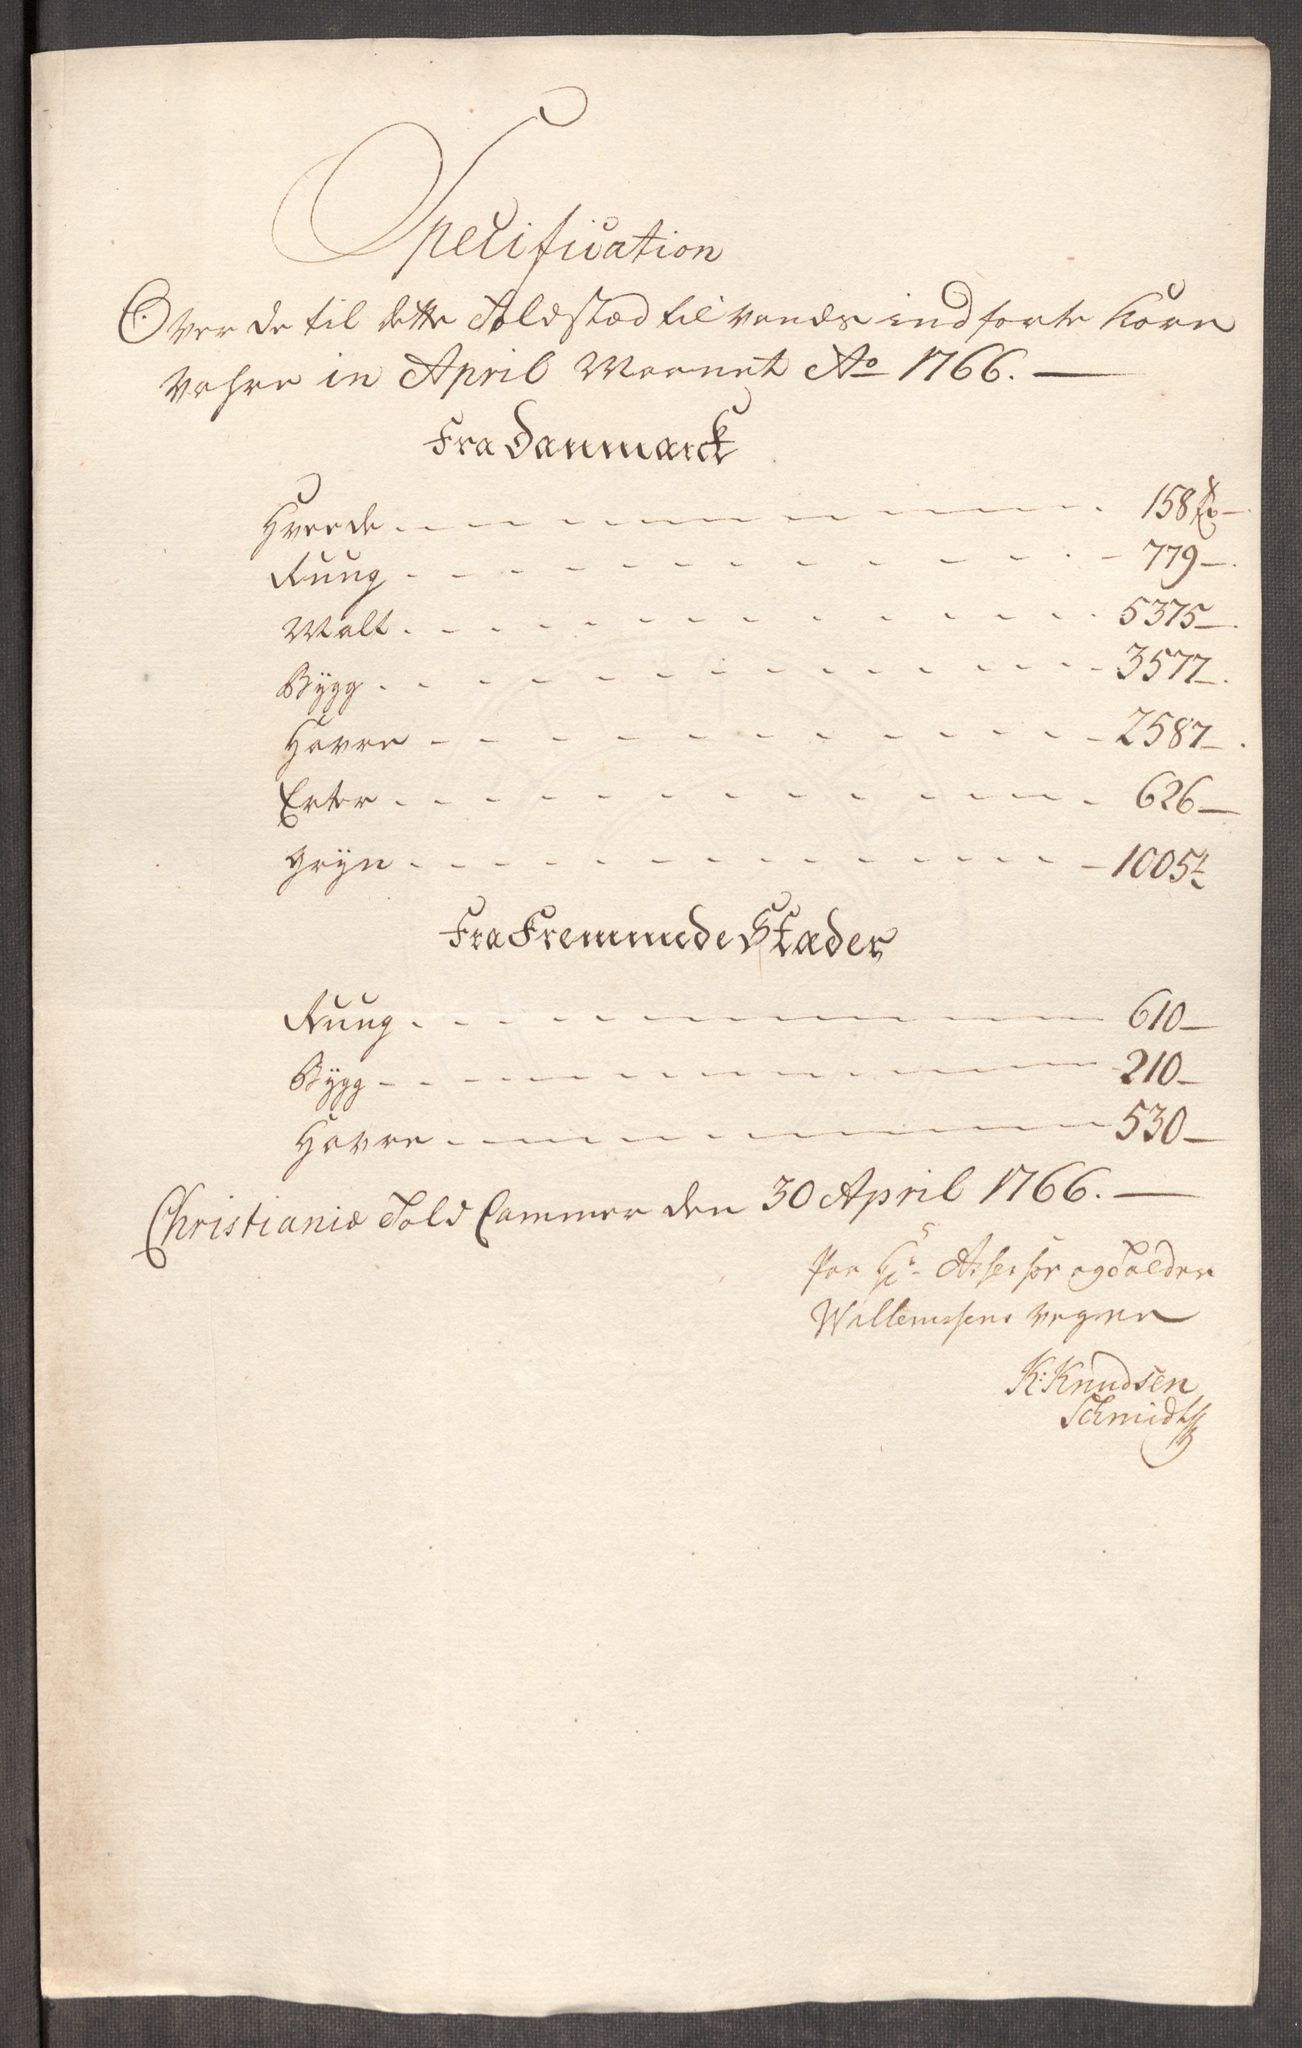 Specification
Over de til dette Toldstæd til vands indførte Korn
Vahre in April Maanet Ao 1766.
Fra Danmarck
Hveede 158
Ruug 779
Malt 5375
Bygg 3577
Havre 2587
Erter 626
Gryn 1005½
Fra Fremmede Stæder
Ruug 610
Bygg 210
Havre 530
Christiania Told Cammer den 30 April 1766.
Paa Hr. Assessor og Tolder
Wallemsens vegne
K: Knudsen
Schmidt